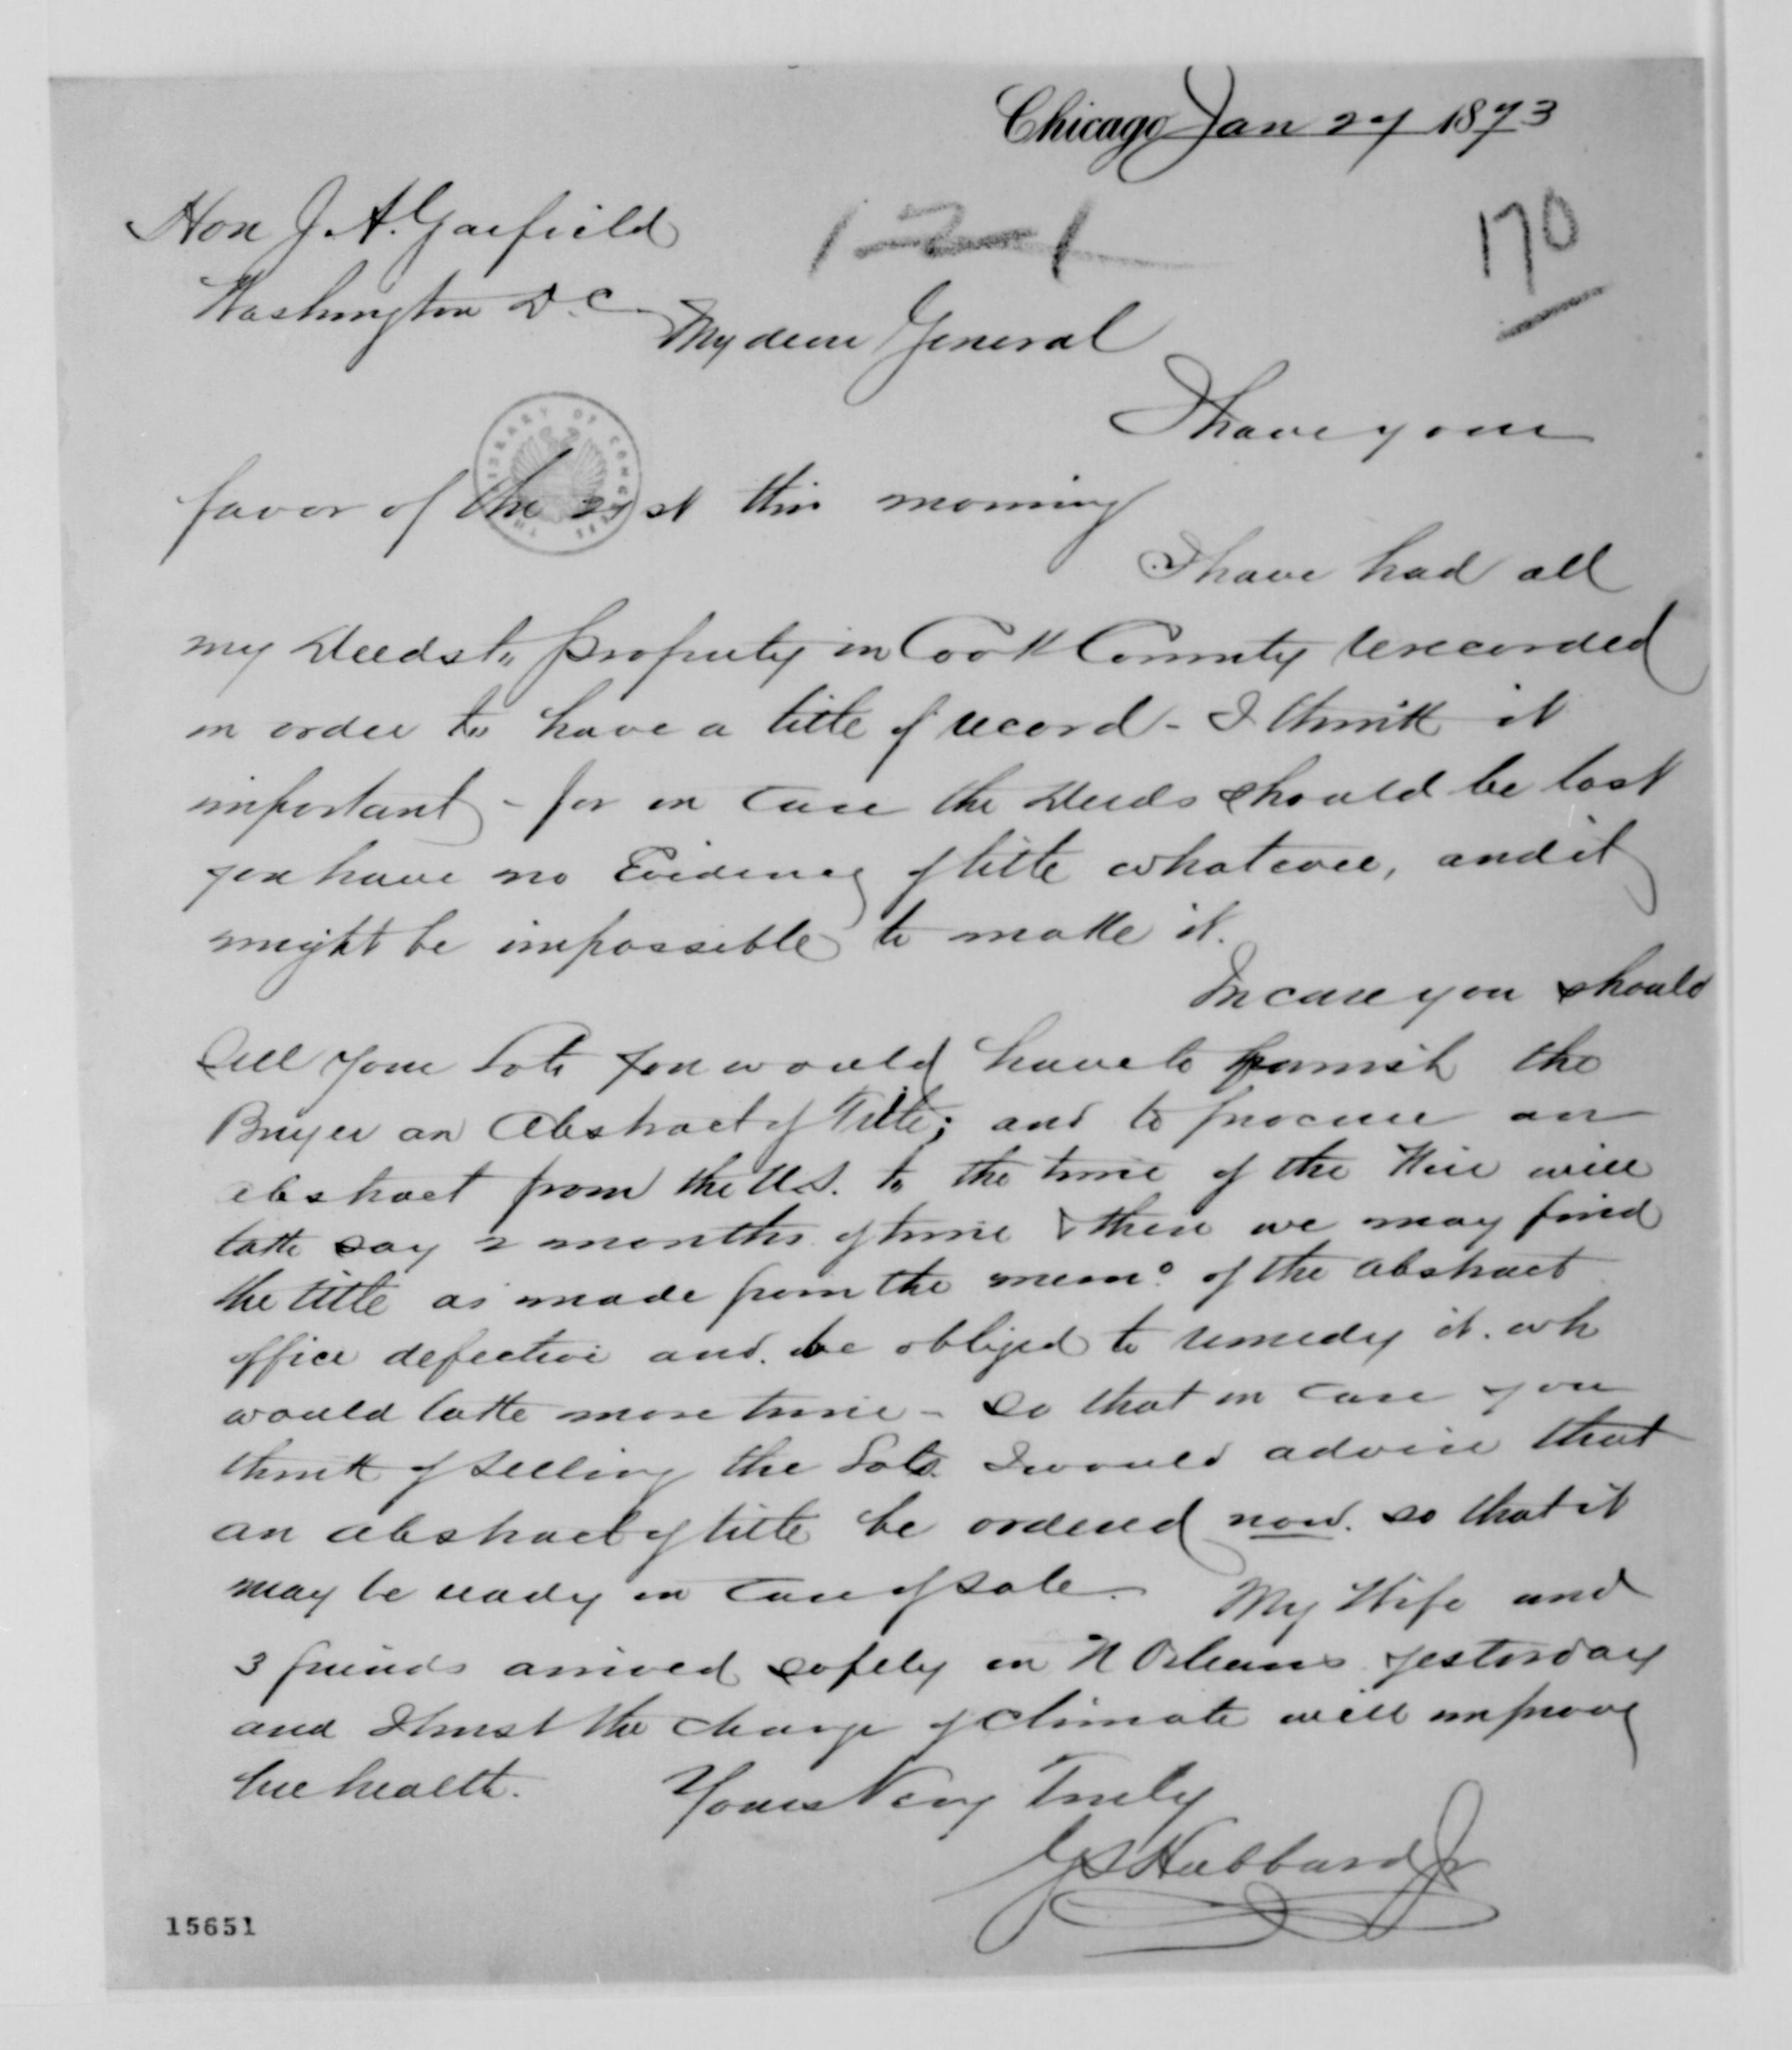 Chicago Jan 27 1873
170
Hon J. A. Garfield
1-2-1
Washington D.C.
My dear General
I have your
favor of the 21st this morning
I have had all
my Deeds to property in Cook County rerecorded
in order to have a title of record - I think it
important - for in case the Deeds should be lost
you have no Evidence of title whatever, and it
might be impossible to make it.
In case you should
sell your Lots you would have to furnish the
Buyer an Abstract of Title; and to procure an
abstract from the U.S. to the time of the Fire will
take say 2 months of time & then we may find
the title as made from the memo of the abstract
office defective and be obliged to remedy it. wh
would take more time - so that in case you
think of selling the Lots I would advise that
an abstract of title be ordered now. so that it
may be ready in case of sale. My Wife and
3 friends arrived safely in N Orleans yesterday
and I trust the change of climate will improve
her health. Yours Very Truly
G S Hubbard Jr
THE LIBRARY OF CONGRESS
15651